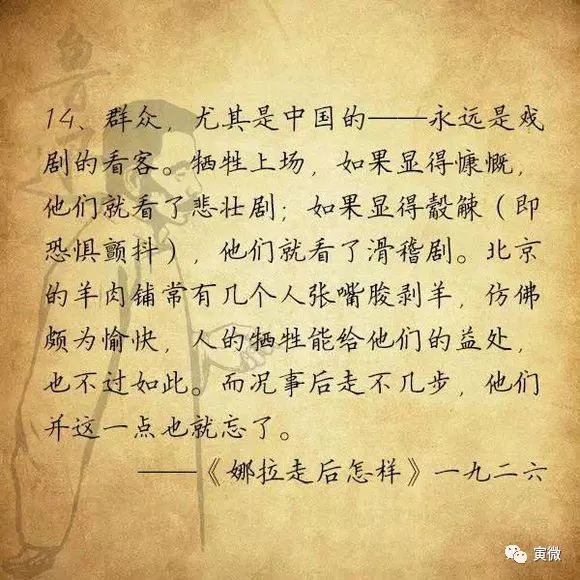 14、群众，尤其是中国的——永远是戏
剧的看客。牺牲上场，如果显得慷慨，
他们就看了悲壮剧；如果显得觳觫（即
恐惧颤抖），他们就看了滑稽剧。北京
的羊肉铺常有几个人张嘴朘剥羊，仿佛
颇为愉快，人的牺牲能给他们的益处，
也不过如此。而况事后走不几步，他们
并这一点也就忘了。
——《娜拉走后怎样》一九二六
寅微